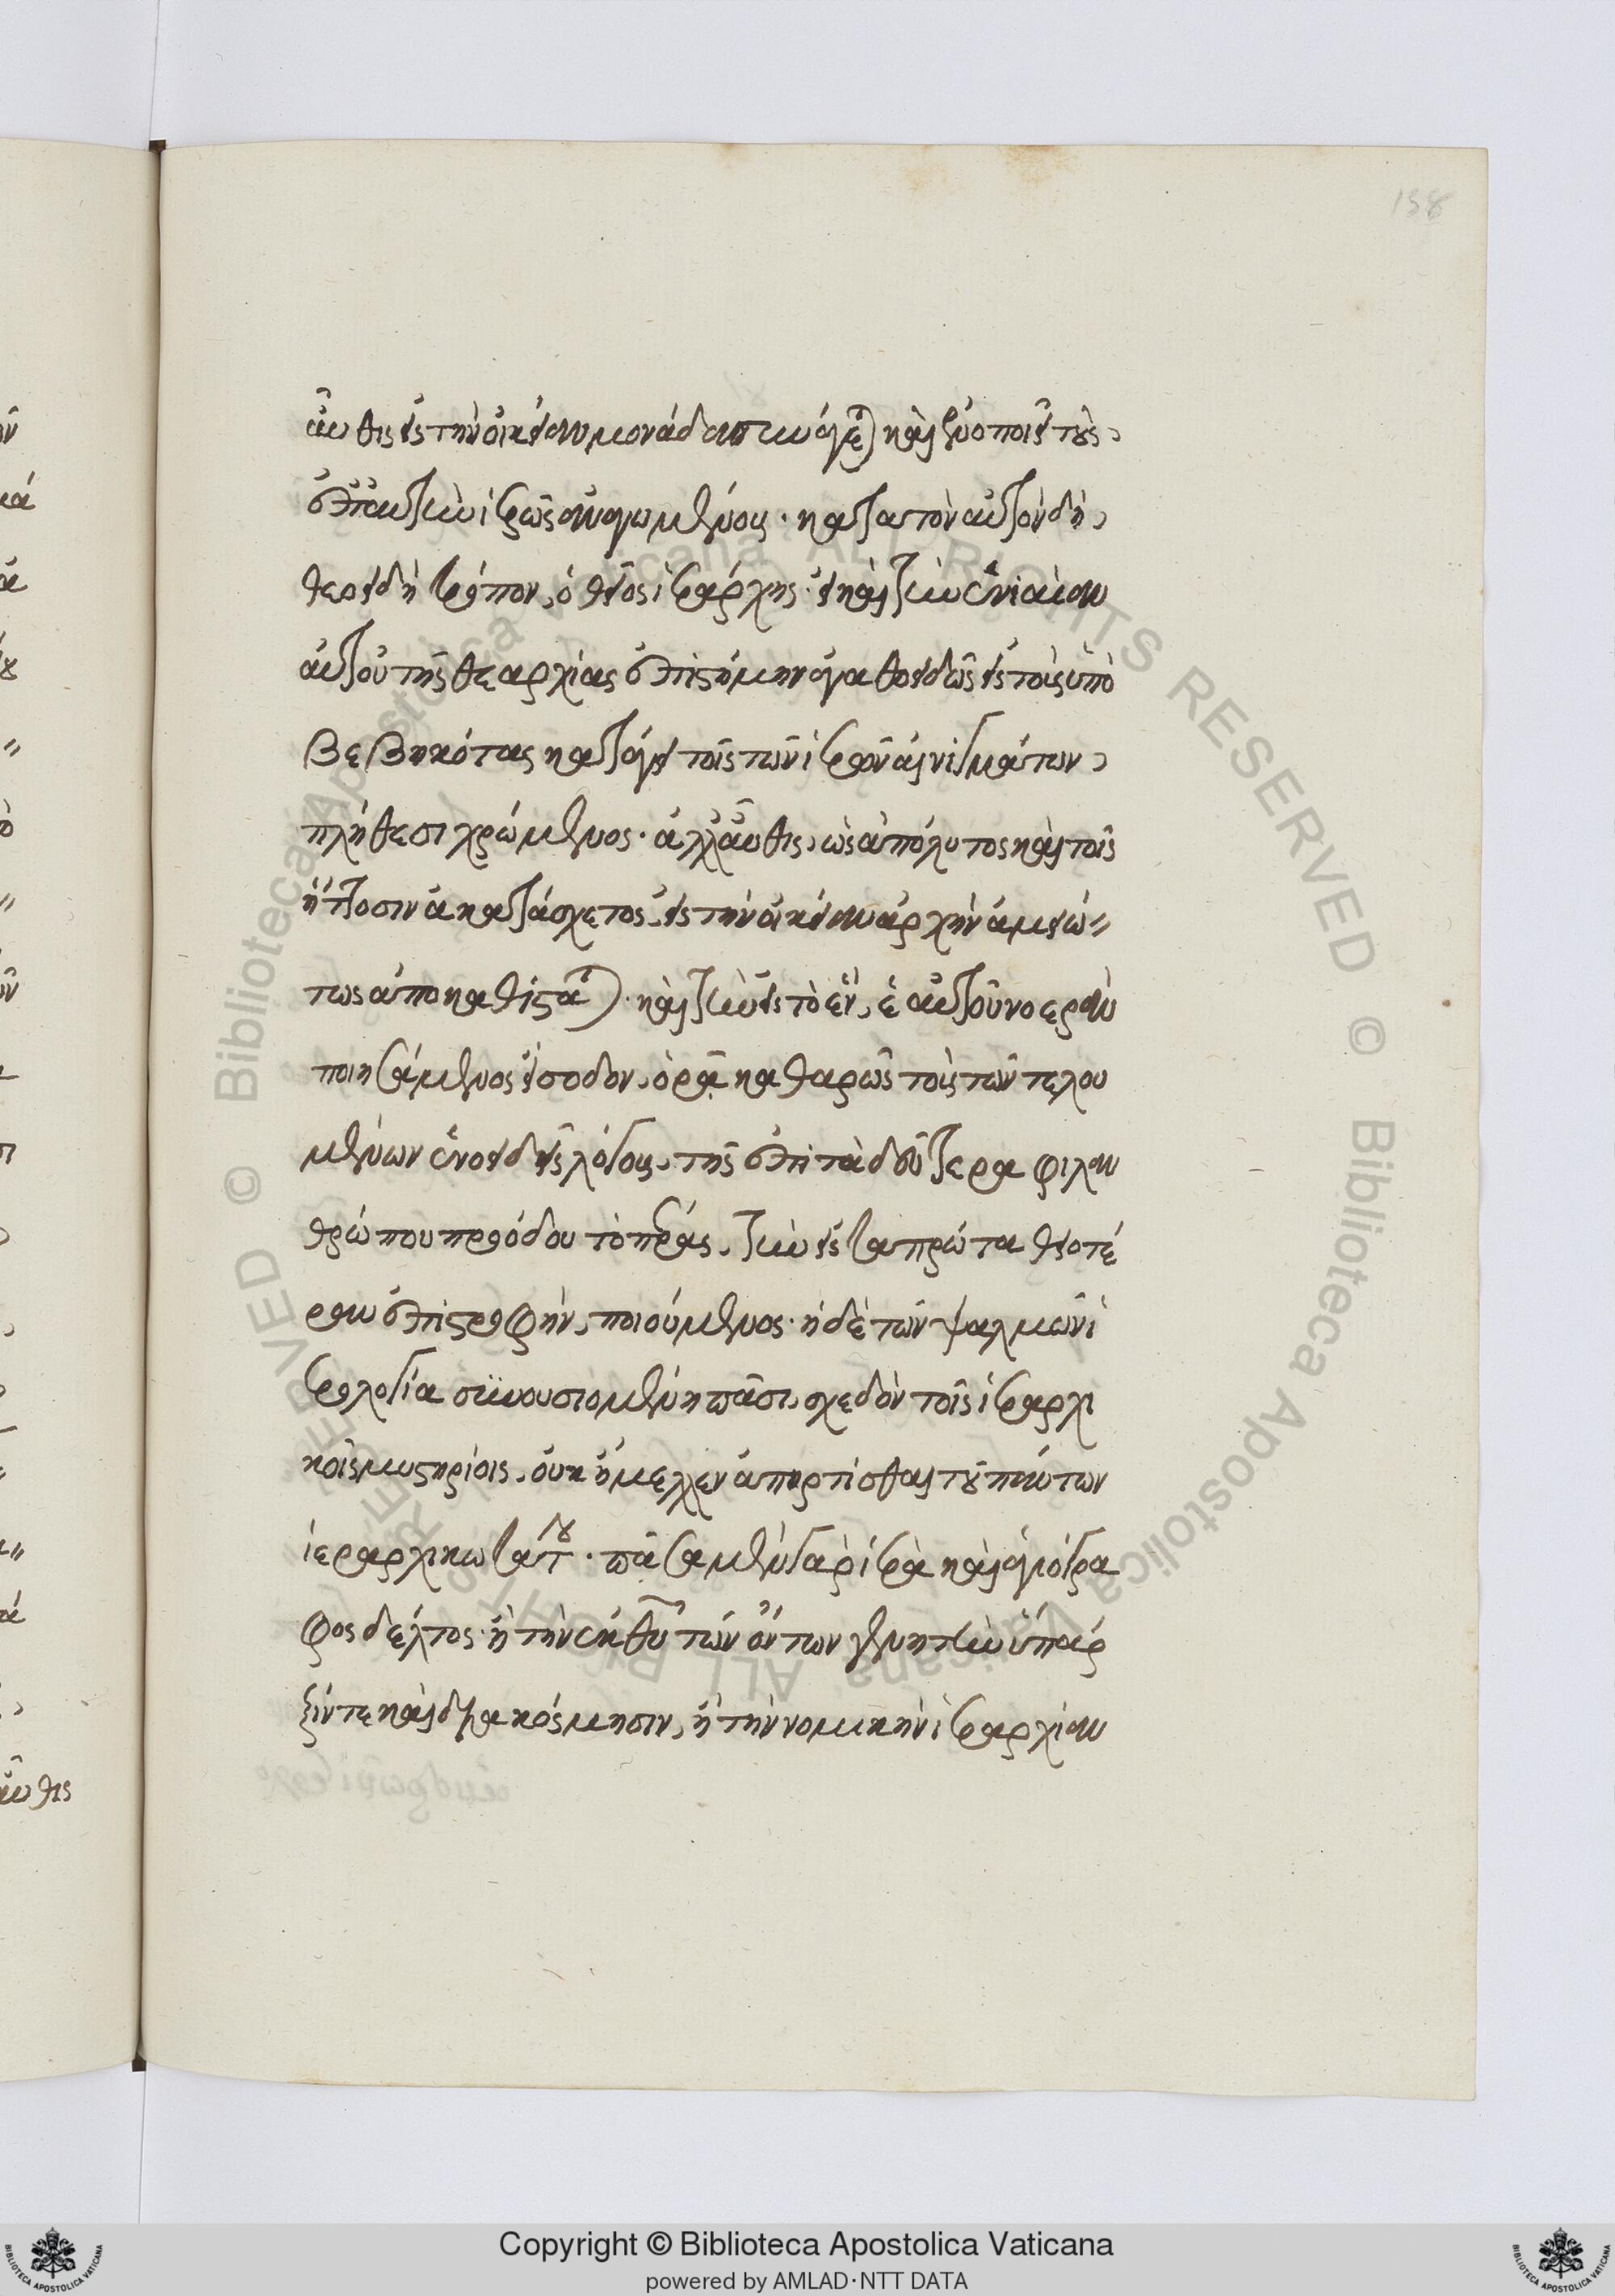 αὖθις εἰς τὴν οἰκείαν μονάδα συνάγεται καὶ ἑνοποιεῖ τοὺς
ἐπ' αὐτὴν ἱερῶς ἀναγομένους. κατὰ τὸν αὐτὸν δὴ
θεοειδῆ τρόπον, ὁ θεῖος ἱεράρχης· εἰ καὶ τὴν ἑνιαίαν
αὐτοῦ τῆς θεαρχίας ἐπιστήμην ἀγαθοειδῶς εἰς τοὺς ὑπο
βεβηκότας κατάγει τοῖς τῶν ἱερῶν αἰνιγμάτων
πλήθεσι χρώμενος. ἀλλ' αὖθις, ὡς ἀπόλυτος καὶ τοῖς
ἥττοσιν ἀκατάσχετος, εἰς τὴν οἰκείαν ἀρχὴν ἀμειώ
τως ἀποκαθίσταται. καὶ τὴν εἰς τὸ ἓν, ἑαυτοῦ νοερὰν
ποιησάμενος εἴσοδον, ὁρᾷ καθαρῶς τοὺς τῶν τελου
μένων ἑνοειδεῖς λόγους, τῆς ἐπὶ τὰ δεύτερα φιλαν
θρώπου προόδου τὸ πέρας, τὴν εἰς τὰ πρῶτα θειοτέ
ραν ἐπιστροφὴν, ποιούμενος. ἡ δὲ τῶν ψαλμῶν ἱ
ερολογία συνουσιωμένη πᾶσι, σχεδὸν τοῖς ἱεραρχι
κοῖς μυστηρίοις, οὐκ ἤμελλεν ἀπηρτίσθαι τοῦ πάντων
ἱεραρχικωτάτου. πᾶσα μὲν γὰρ ἱερὰ καὶ ἁγιόγρα
φος δέλτος· ἢ τὴν ἐκ θεοῦ τῶν ὄντων γενητὴν ὕπαρ
ξίν τε καὶ διακόσμησιν, ἢ τὴν νομικὴν ἱεραρχίαν
αὖθις
Copyright © Biblioteca Apostolica Vaticana
powered by AMLAD·NTT DATA